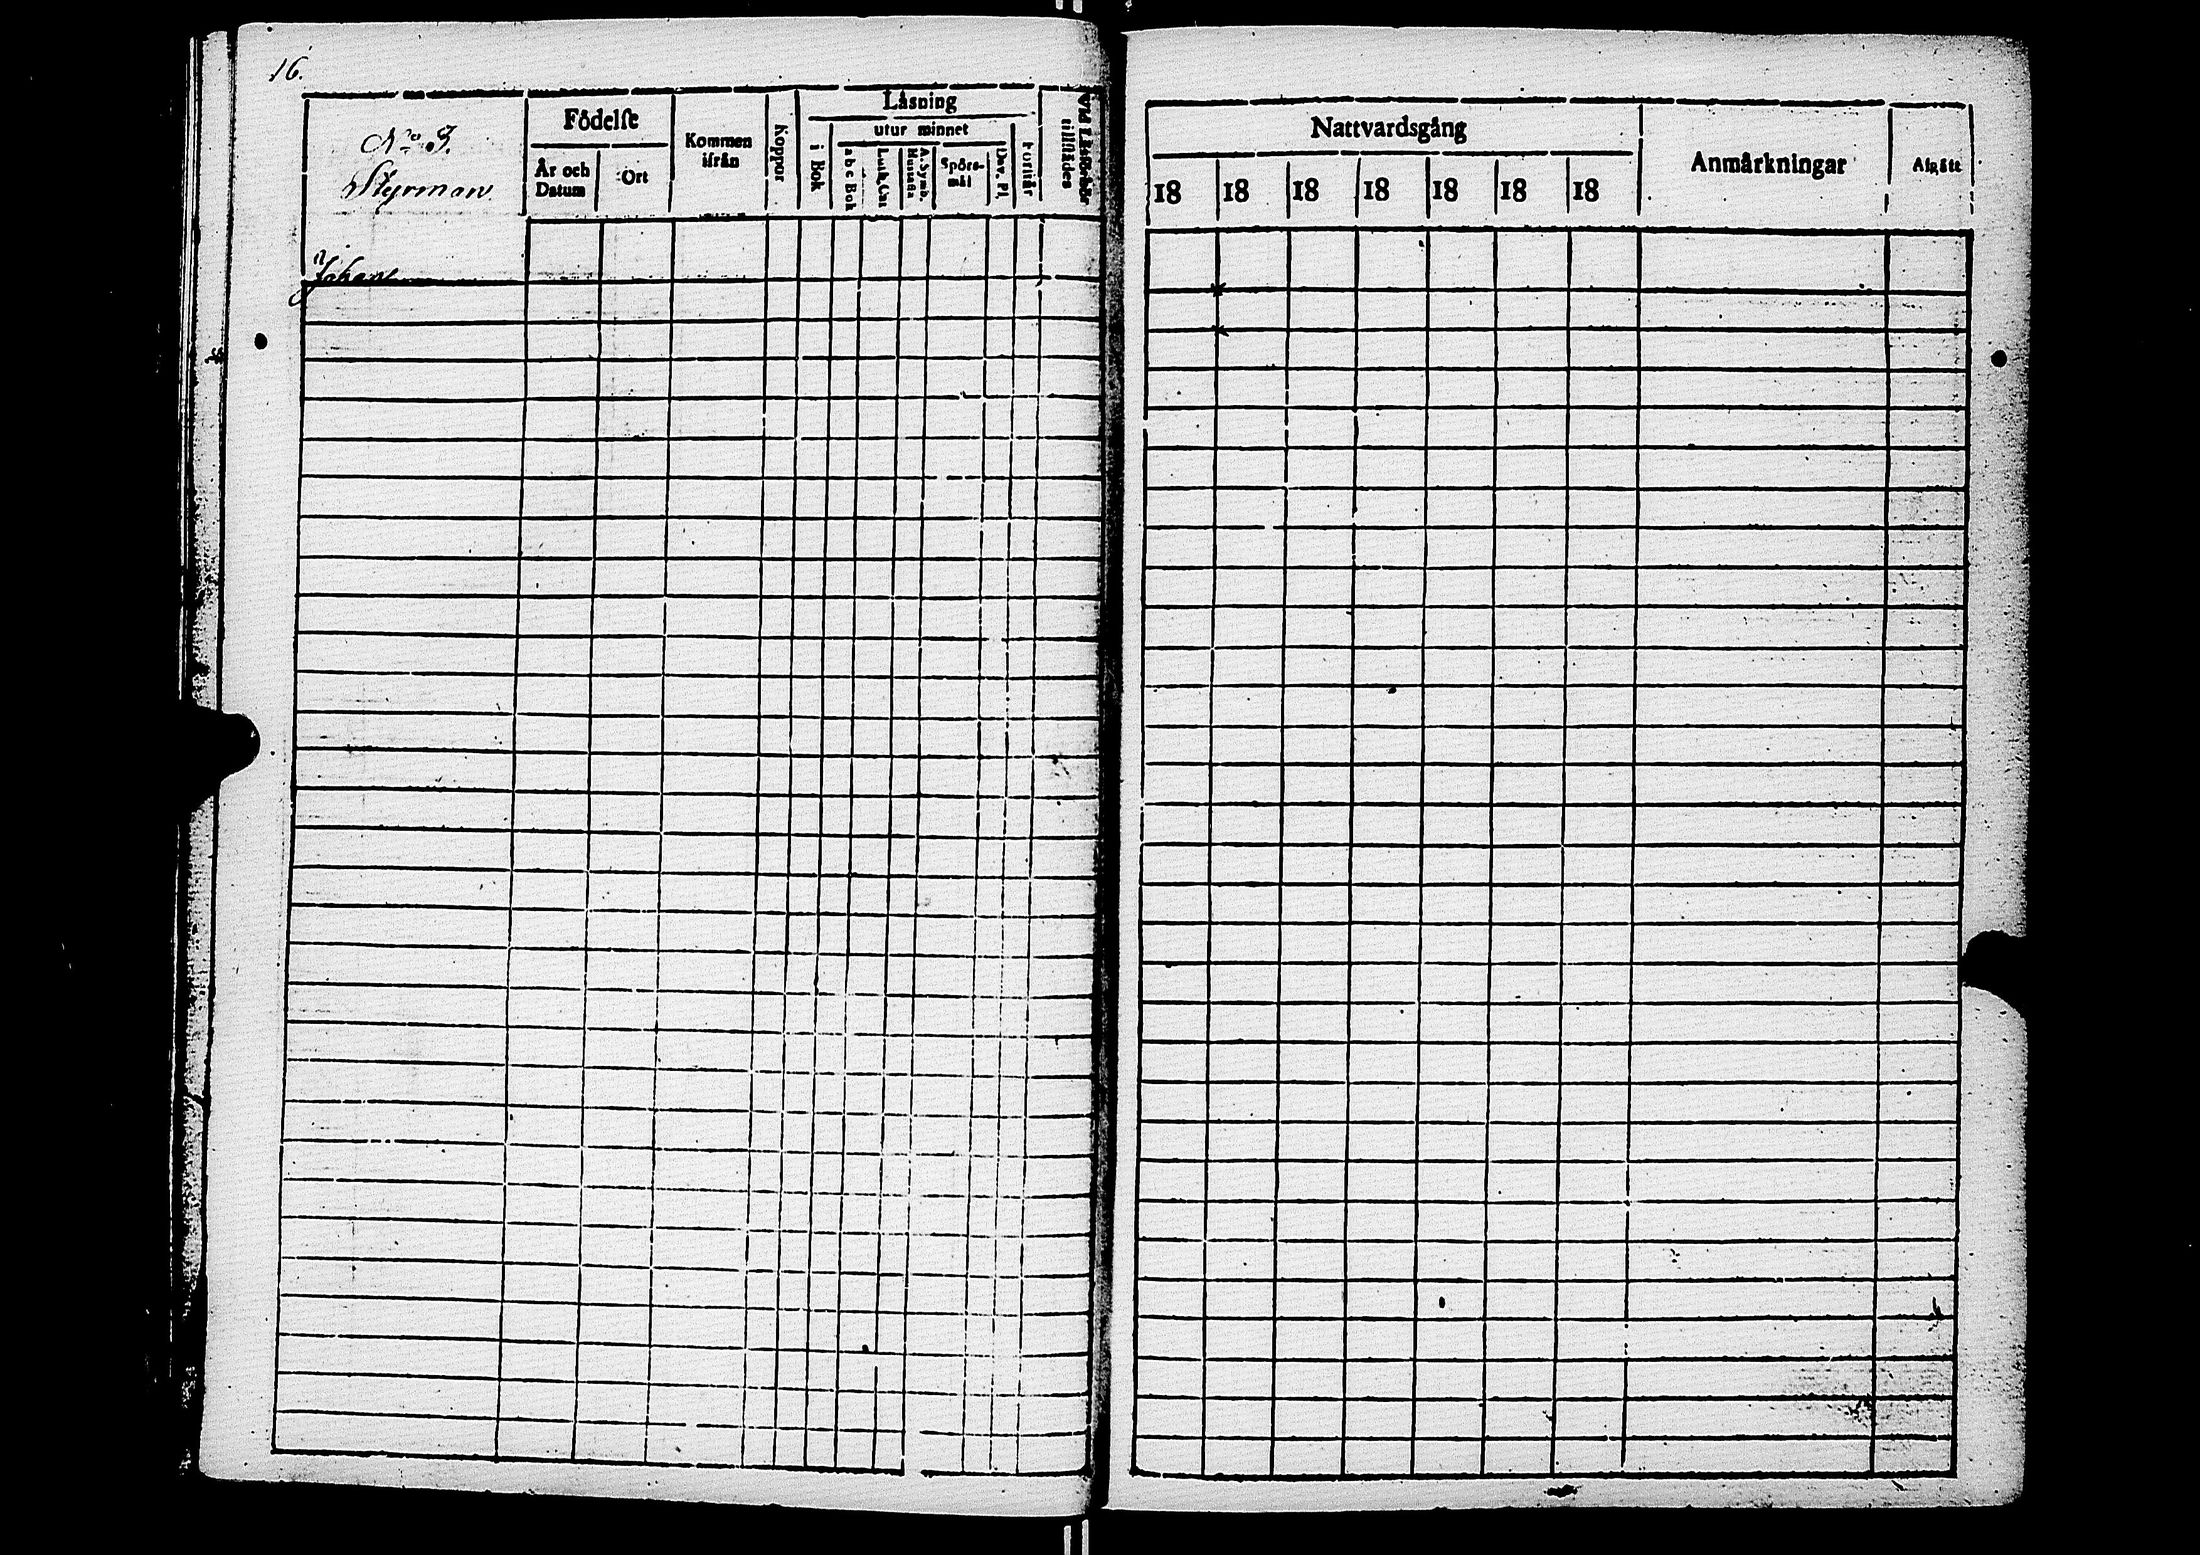 16.
No 3.
Styrman
Födelse
År och
Datum
Ort
Kommen
ifrån
Koppor
Läsning
i Bok
utur minnet
a b c Bok
Luth. Cat
A. Symb.
Spörs-
mål
Dav. Ps.
Förstår
Vid Läsförhör
tillstädes
Johan
Nattvardsgång
18 18 18 18 18 18 18
Anmärkningar
Afgått